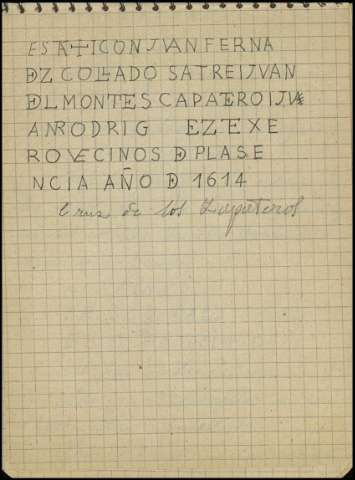 ESTA ✝ ICON JVAN FERNA
DZ COLLADO SATRE IJVAN
DL MONTES CAPAERO IJV
AN RODRIG EZ EXE
RO VECINOS D PLASE
NCIA AÑO D 1614
Cruz de los Zapateros